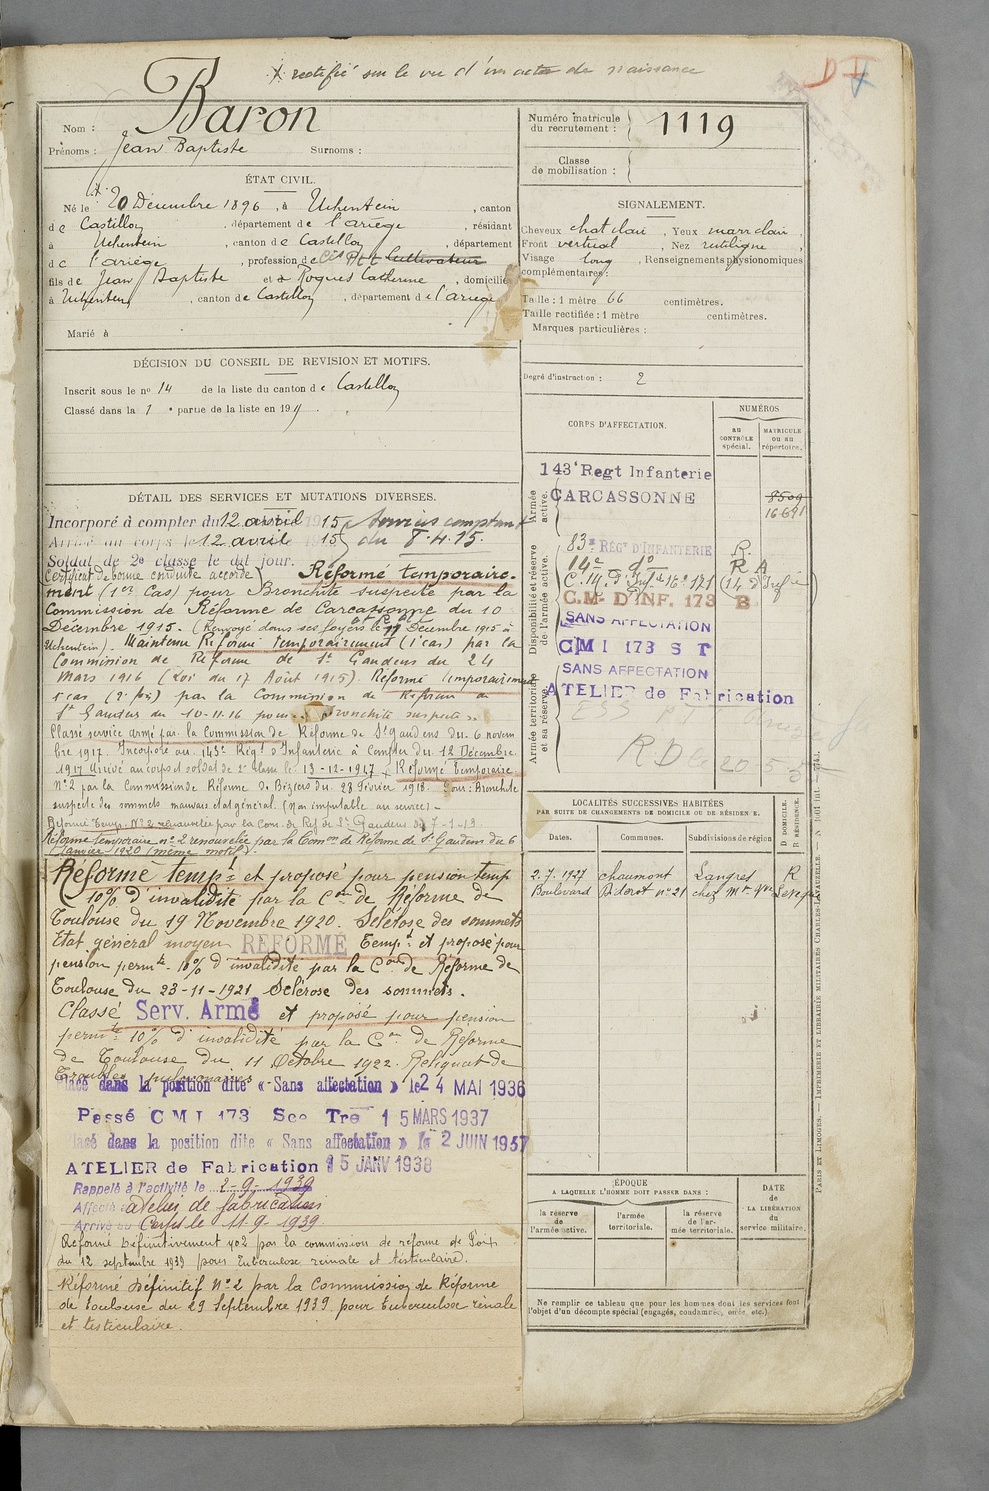 x rectifié sur le vu d'un acte de naissance
Nom : Baron
Prénoms : Jean Baptiste Surnoms :
ÉTAT CIVIL.
Né le 20 Décembre 1896, à Uchentein, canton
de Castillon, département de l'ariège, résidant
à Uchentein, canton de Castillon, département
de l'ariège, profession de Cultivateur
fils de Jean Baptiste et de Roques Catherine, domiciliés
à Uchentein, canton de Castillon, département de l'ariège
Marié à
DÉCISION DU CONSEIL DE REVISION ET MOTIFS.
Inscrit sous le no 14 de la liste du canton de Castillon
Classé dans la 1e partie de la liste en 191
DÉTAIL DES SERVICES ET MUTATIONS DIVERSES.
Incorporé à compter du 12 avril 1915 services comptant
Arrivé au corps le 12 avril 1915 du 8.4.15.
Soldat de 2e classe le dit jour.
Certificat de bonne conduite accordé Réformé temporaire-
ment (1er Cas) pour Bronchite suspecte par la
Commission de Réforme de Carcassonne du 10
Décembre 1915. (Renvoyé dans ses foyers le Décembre 1915 à
Uchentein). Maintenu Réformé temporairement (1er cas) par la
Commission de Réforme de St Gaudens du 24
Mars 1916 (Loi du 17 Août 1915). Réformé temporairement
1er cas (2e fois) par la Commission de Réforme de
St Gaudens du 10-11-16 pour Bronchite suspecte.
Classé service armé par la Commission de Réforme de St gaudens du 6 novem
bre 1917. Incorporé au 143e Régt d'Infanterie à Compter du 12 Décembre
1917 arrivé au corps et soldat de 2e classe le 13-12-1917. Réformé temporaire
No 2 par la Commission de Réforme de Béziers du 28 Février 1918. Pour : Bronchite
suspecte des sommets mauvais état général. (non imputable au service) -
Réforme Temp. No 2 renouvelée par la Com. de Ref de St Gaudens du 7-1-19
Réforme temporaire no 2 renouvelée par la Comon de Réforme de St Gaudens du 6
Janvier 1920 (même motif).
Réformé tempre et proposé pour pension temp
10% d'invalidité par la Con de Réforme de
Toulouse du 19 Novembre 1920. Sclérose des sommets
Etat général moyen RÉFORMÉ Tempt et proposé pour
pension permte 10% d'invalidité par la Con de Réforme de
Toulouse du 23-11-1921 Sclérose des sommets.
Classé Serv. Armé et proposé pour pension
permte 10% d'invalidité par la Con de Réforme
de Toulouse du 11 Octobre 1922. Reliquat de
Troubles pulmonaires
Placé dans la position dite « Sans affectation » le 24 MAI 1936
Passé C M I 173 Sce Tre 15 MARS 1937
Placé dans la position dite « Sans affectation » le 2 JUIN 1937
ATELIER de Fabrication 15 JANV 1938
Rappelé à l'activité le 2-9-1939
Affecté atelier de fabrication
Arrivé au Corps le 11-9-1939.
Réformé Définitivement no2 par la commission de réforme de Foix
du 12 septembre 1939 pour Tuberculose rénale et testiculaire.
Réformé Définitif No 2 par la Commission de Réforme
de Toulouse du 29 Septembre 1939 pour Tuberculose rénale
et testiculaire.
Numéro matricule du recrutement : 1119
Classe de mobilisation :
SIGNALEMENT.
Cheveux chat clair, Yeux marr clair,
Front vertical, Nez rectiligne,
Visage long, Renseignements physionomiques
complémentaires :
Taille : 1 mètre 66 centimètres.
Taille rectifiée : 1 mètre centimètres.
Marques particulières :
Degré d'instruction : 2
CORPS D'AFFECTATION.
NUMÉROS
au CONTRÔLE spécial.
MATRICULE ou au répertoire.
Armée active.
143e Regt Infanterie
CARCASSONNE
8509
16691
Disponibilité et réserve de l'armée active.
83e RÉGt D'INFANTERIE R.
14e do R A
C. M. D'INF. 173 B
SANS AFFECTATION
CMI 173 S T
Armée territoriale et sa réserve.
SANS AFFECTATION
ATELIER de Fabrication
RD le 20-5-5
LOCALITÉS SUCCESSIVES HABITÉES
PAR SUITE DE CHANGEMENTS DE DOMICILE OU DE RÉSIDENCE.
Dates. Communes. Subdivisions de région
D DOMICILE.
R RÉSIDENCE.
2.7.1927 chaumont Langres R
Boulevard Diderot no 21 chez Mr
ÉPOQUE
A LAQUELLE L'HOMME DOIT PASSER DANS :
la réserve de l'armée active.
l'armée territoriale.
la réserve de l'armée territoriale.
DATE de LA LIBÉRATION du service militaire.
Ne remplir ce tableau que pour les hommes dont les services font
l'objet d'un décompte spécial (engagés, condamnés, omis, etc.).
PARIS ET LIMOGES. — IMPRIMERIE ET LIBRAIRIE MILITAIRES CHARLES-LAVAUZELLE.